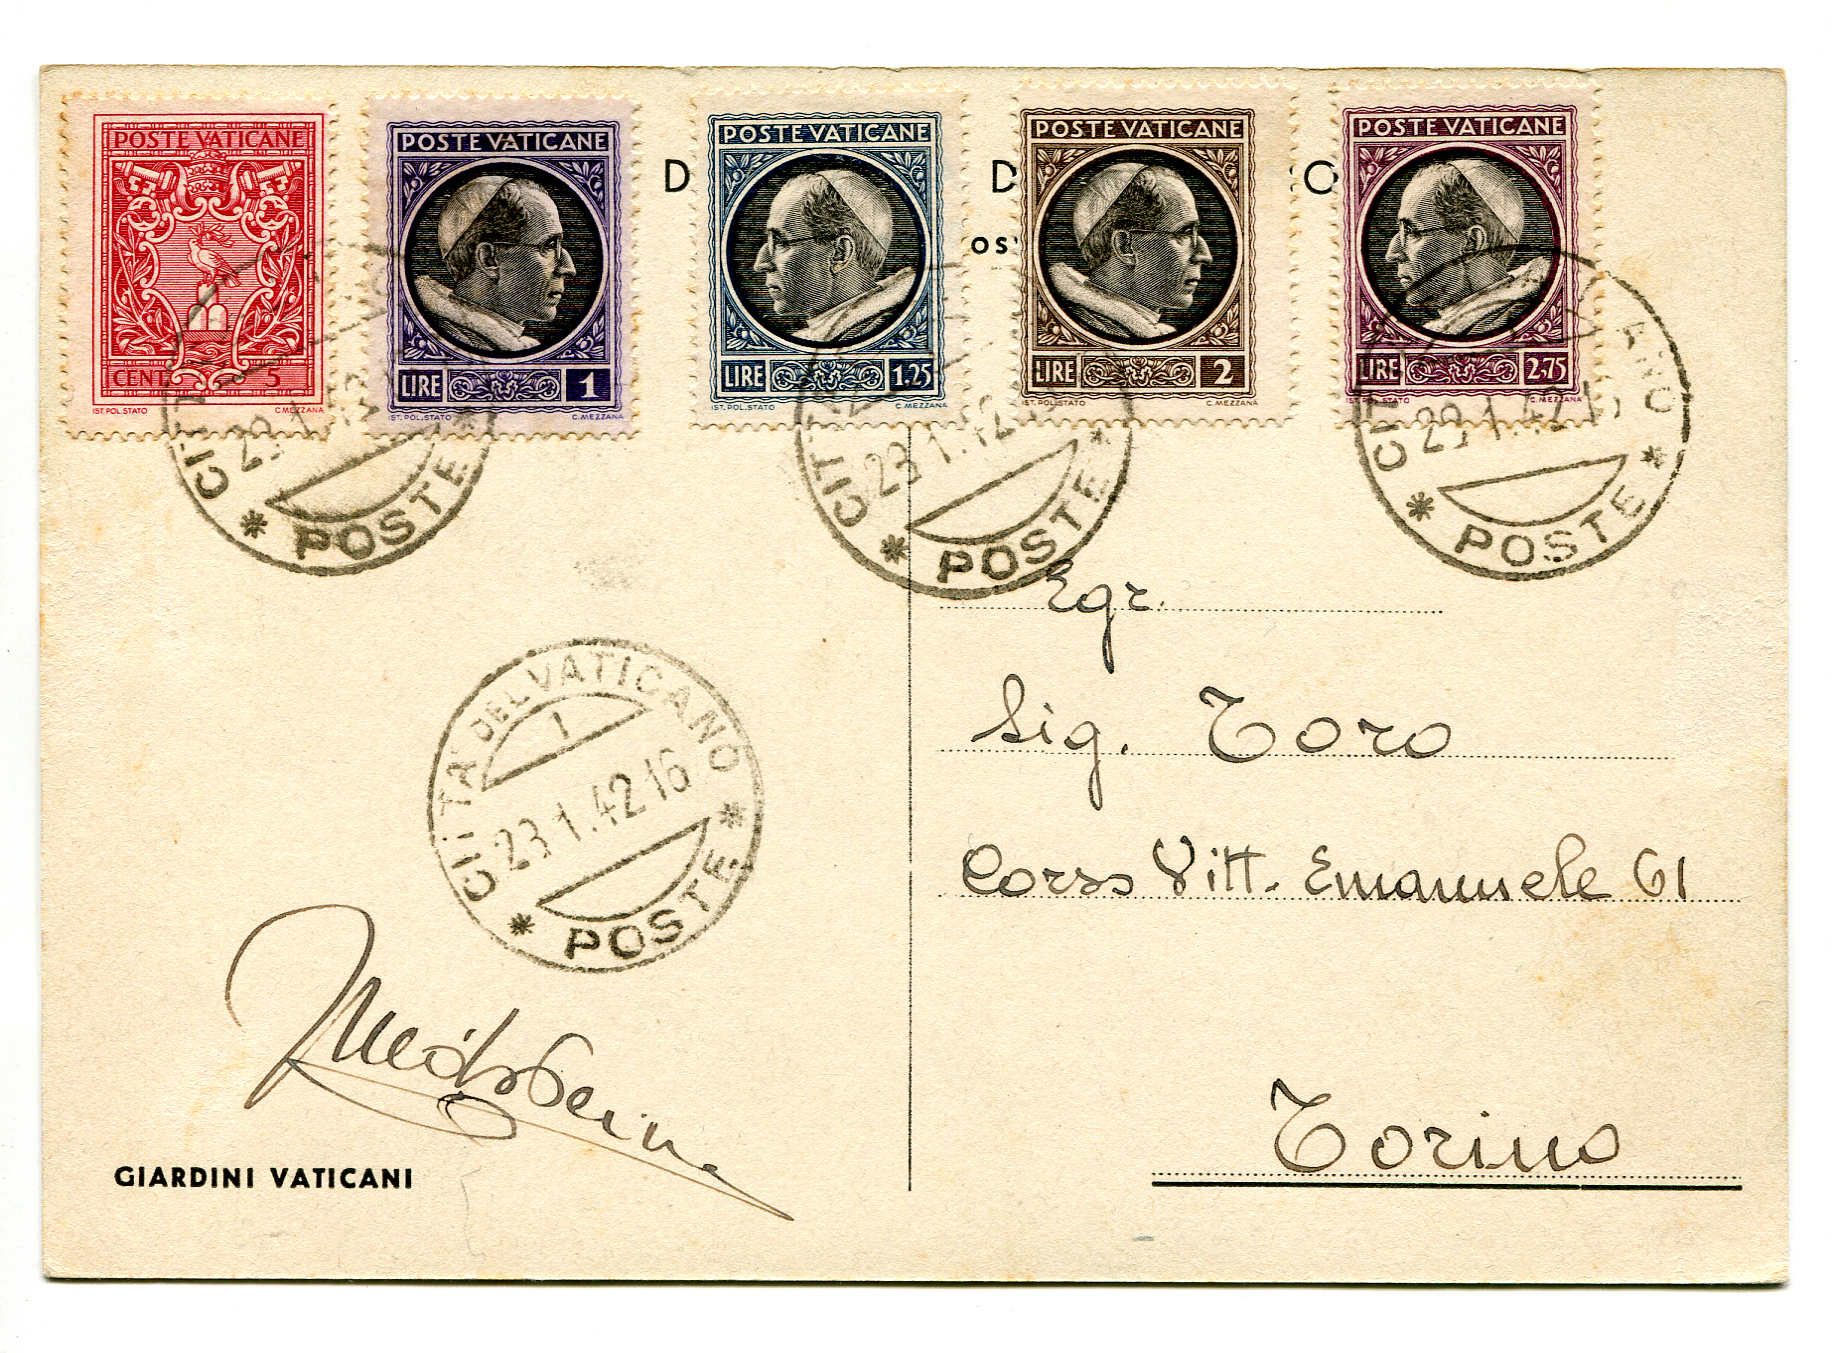 POSTE VATICANE
CENT. 5
IST. POL. STATO C. MEZZANA
POSTE VATICANE
LIRE 1
IST. POL. STATO C. MEZZANA
D
POSTE VATICANE
LIRE 1.25
IST. POL. STATO C. MEZZANA
D
OS
POSTE VATICANE
LIRE 2
IST. POL. STATO C. MEZZANA
O
POSTE VATICANE
LIRE 2.75
IST. POL. STATO C. MEZZANA
CIT
23.1.42
* POSTE *
CITT
23.1.42
* POSTE *
CITT ANO
23.1.42
* POSTE *
CITTA DEL VATICANO
1
23.1.42 16
* POSTE *
Egr.
Sig. Toro
Corso Vitt. Emanuele 61
Torino
GIARDINI VATICANI